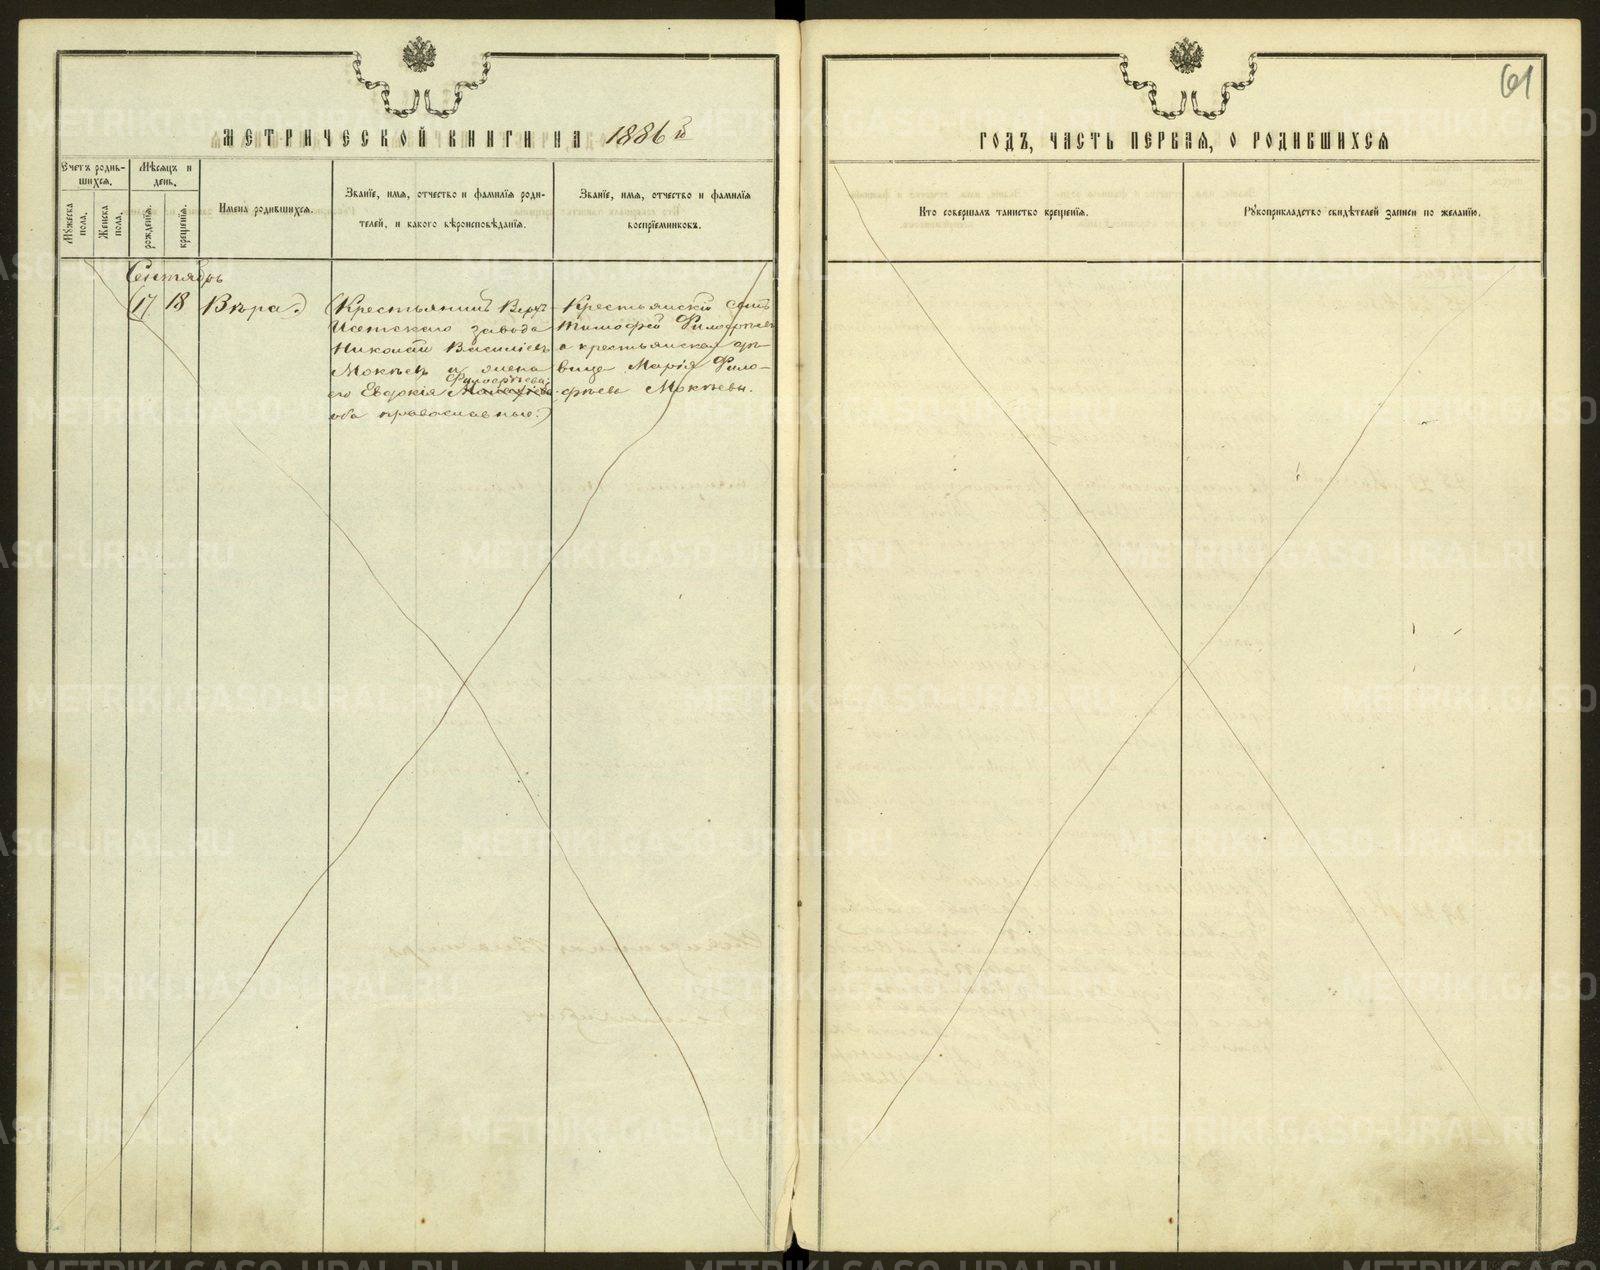 61
МЕТРИЧЕСКОЙ КНИГИ НА 1886й
ГОДЪ, ЧАСТЬ ПЕРВАЯ, О РОДИВШИХСЯ
Счетъ родившихся.
Мужеска пола.
Женска пола.
Мѣсяцъ и день.
рожденія.
крещенія.
Имена родившихся.
Званіе, имя, отчество и фамилія родителей, и какого вѣроисповѣданія.
Званіе, имя, отчество и фамилія воспріемниковъ.
Кто совершалъ таинство крещенія.
Рукоприкладство свидѣтелей записи по желанію.
Сентябрь
(17 18 Вѣра.)
(Крестьянинъ Верх-
Исетскаго завода
Николай Василіевъ
Мокѣевъ и жена
его Евдокія Филофѣева;
оба православные.)
Крестьянскій сынъ
Тимофей Филофѣевъ
и крестьянская дѣ-
вица Марія Фило-
фѣева Мокѣева.
METRIKI.GASO-URAL.RU